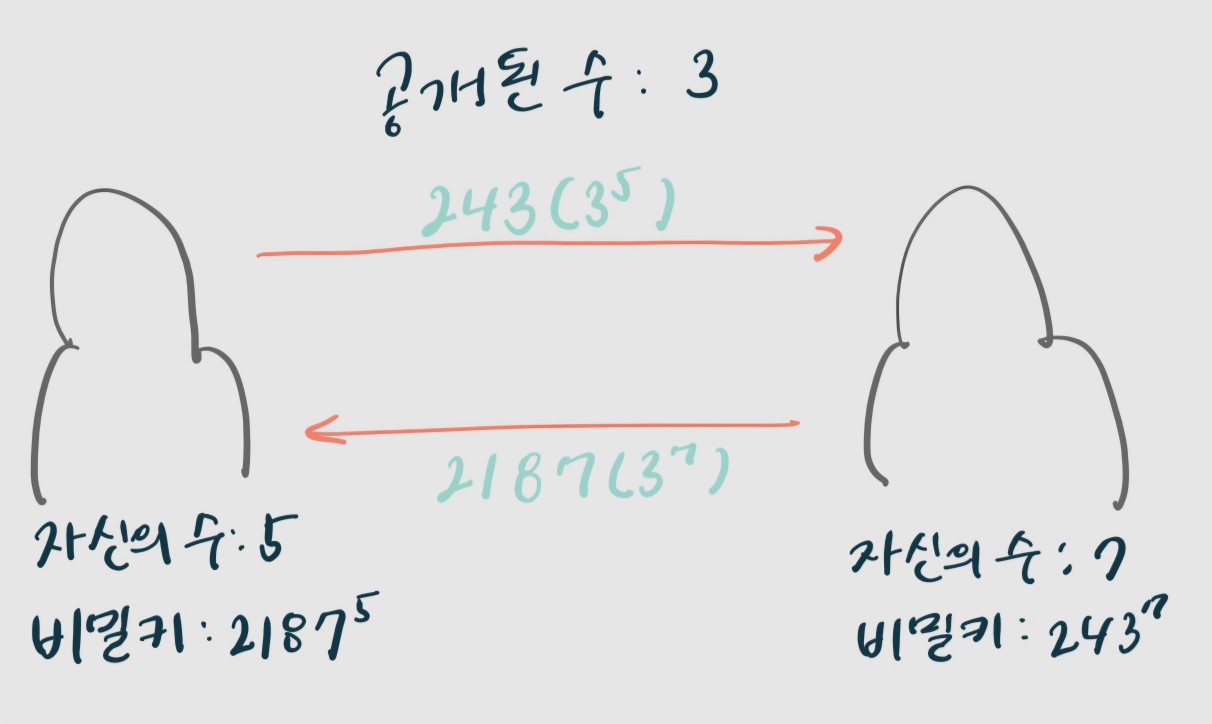 공개된 수 : 3
243(3⁵)
2187(3⁷)
자신의 수 : 5
비밀키 : 2187⁵
자신의 수 : 7
비밀키 : 243⁷